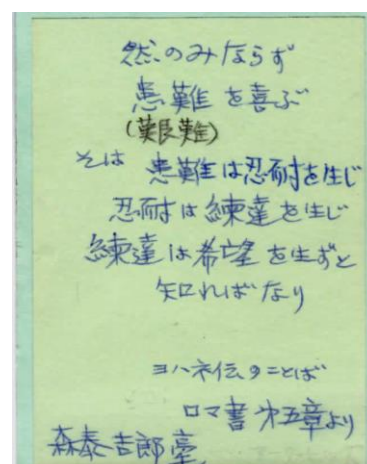 然のみならず
患難を喜ぶ
(艱難)
そは 患難は忍耐を生じ
忍耐は練達を生じ
練達は希望を生ずと
知ればなり
ヨハネ伝のことば
ロマ書 第五章より
森泰吉郎臺